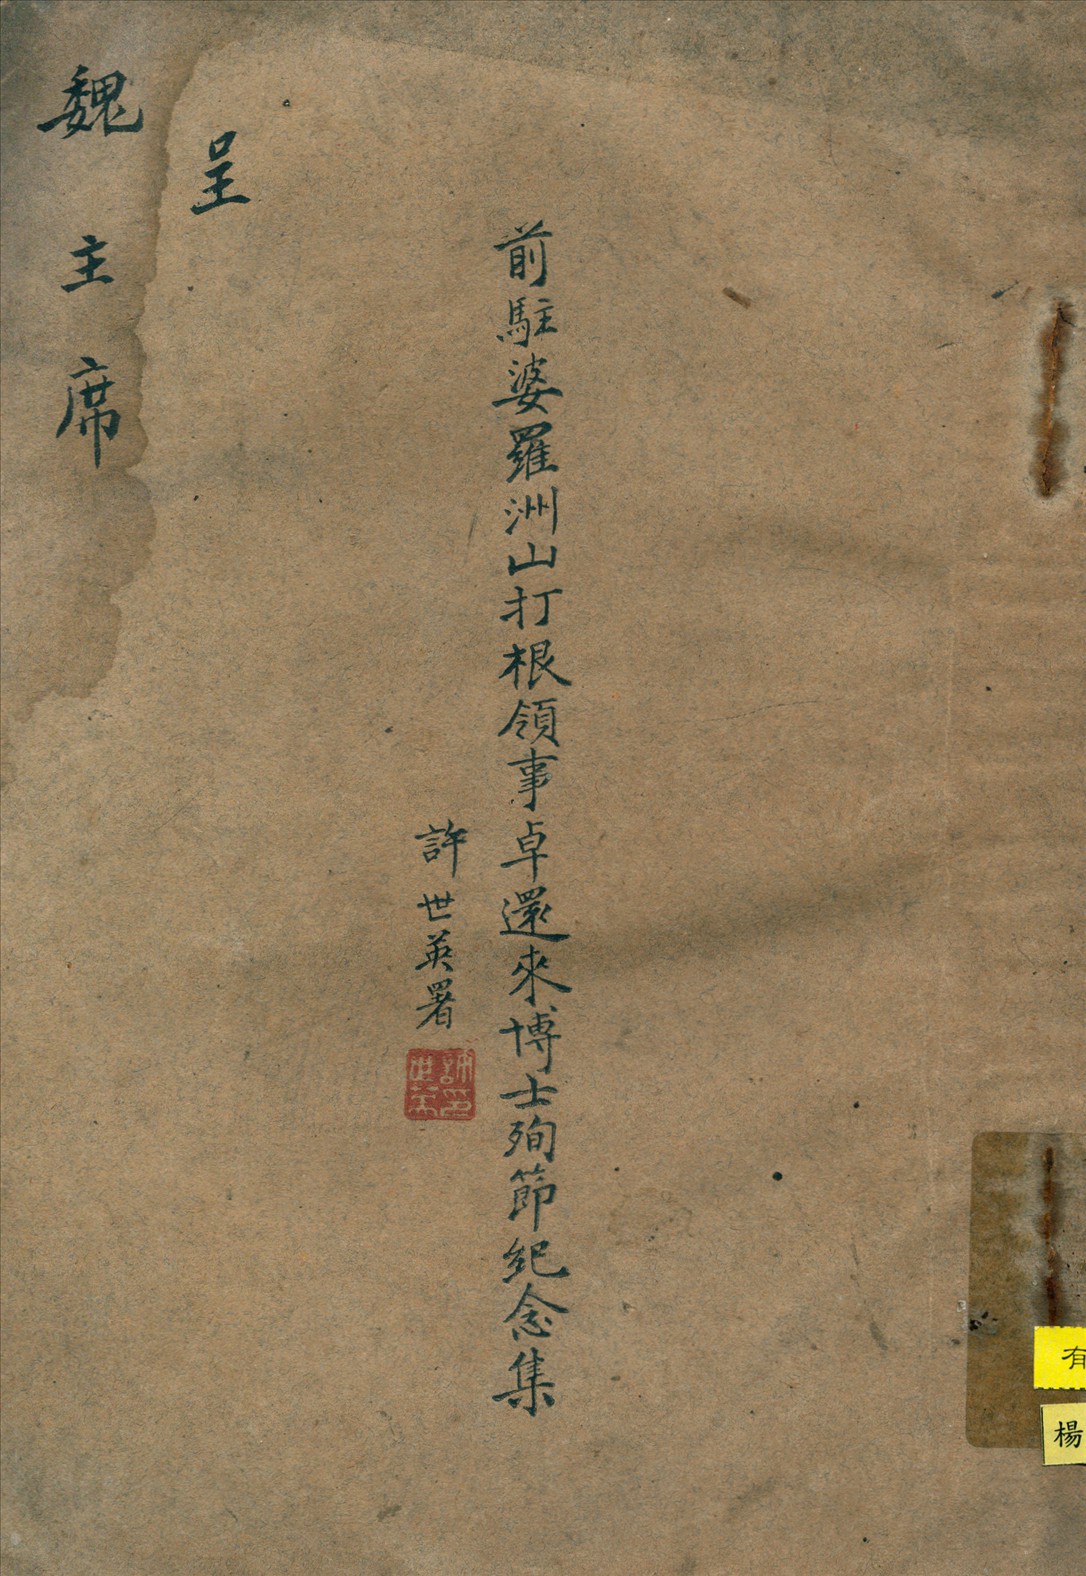 有
楊
前駐婆羅洲山打根領事卓還來博士殉節紀念集
許世英署
許世英印
呈
魏主席